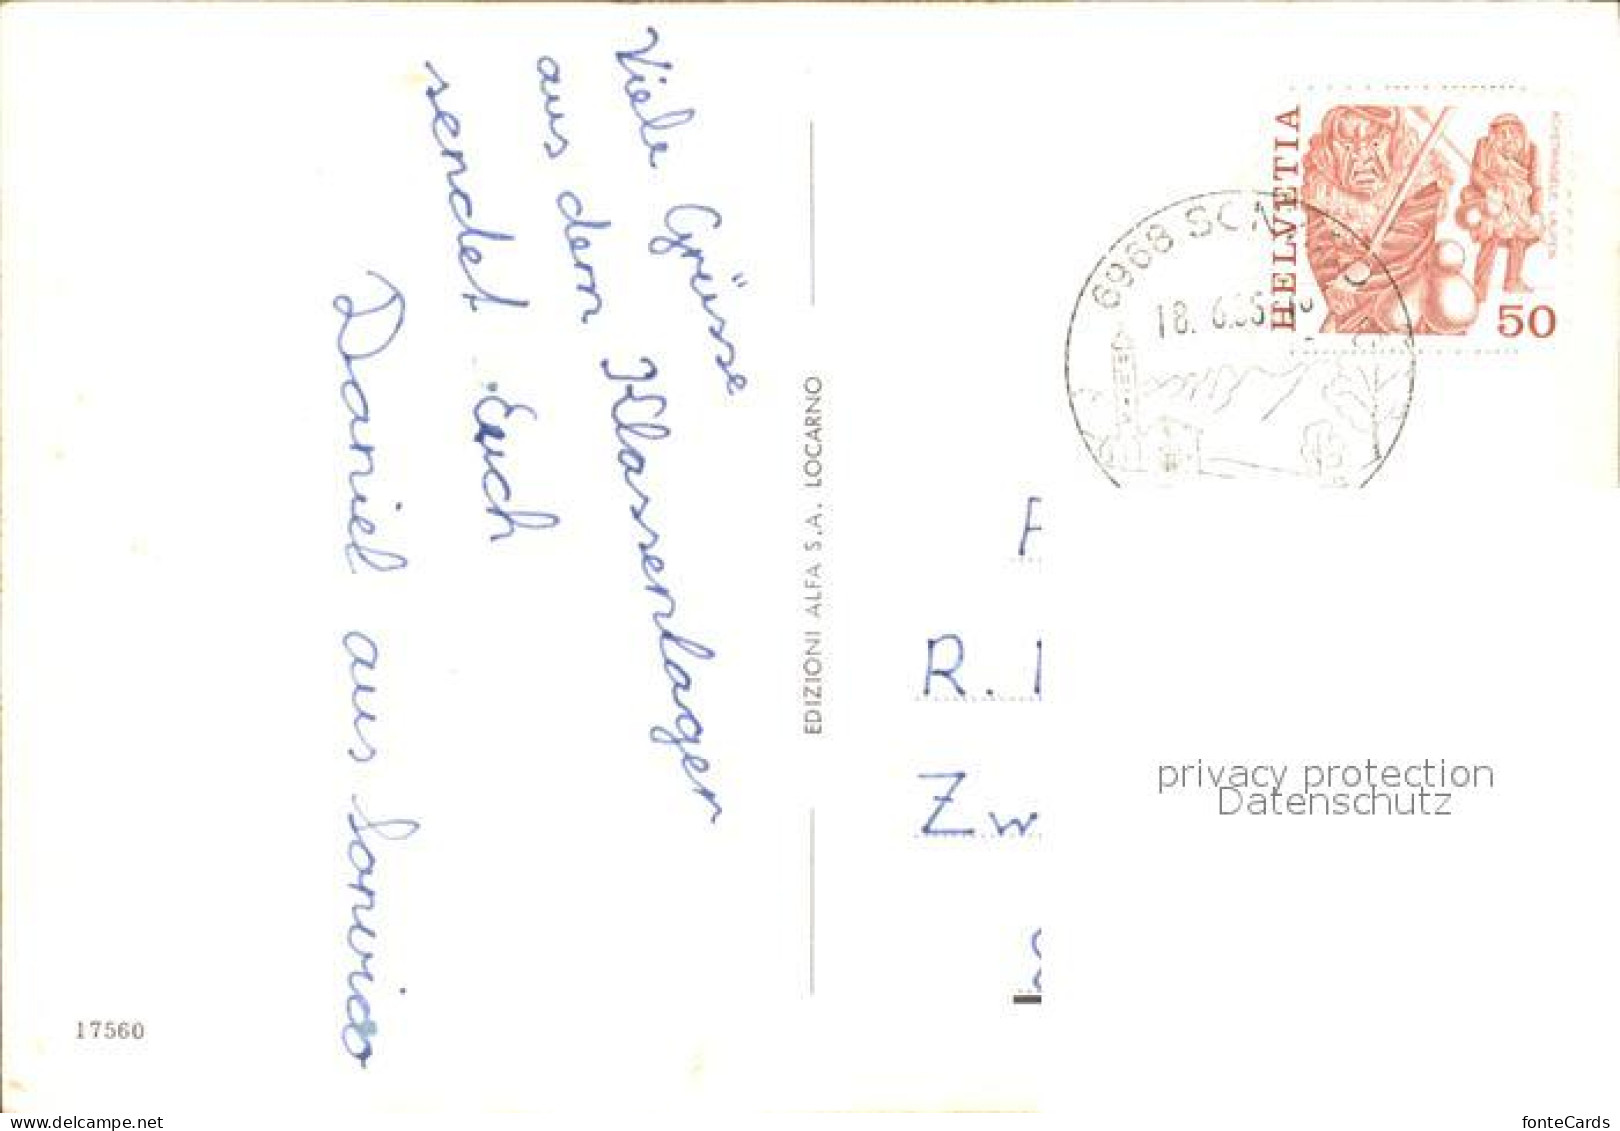 Viele Grüsse
aus dem Klassenlager
sendet Euch
Daniel aus Sonvico
17560
EDIZIONI ALFA S.A. LOCARNO
HELVETIA
50
6968 SO
18. 6.
R.
Zw
privacy protection
Datenschutz
fonteCards